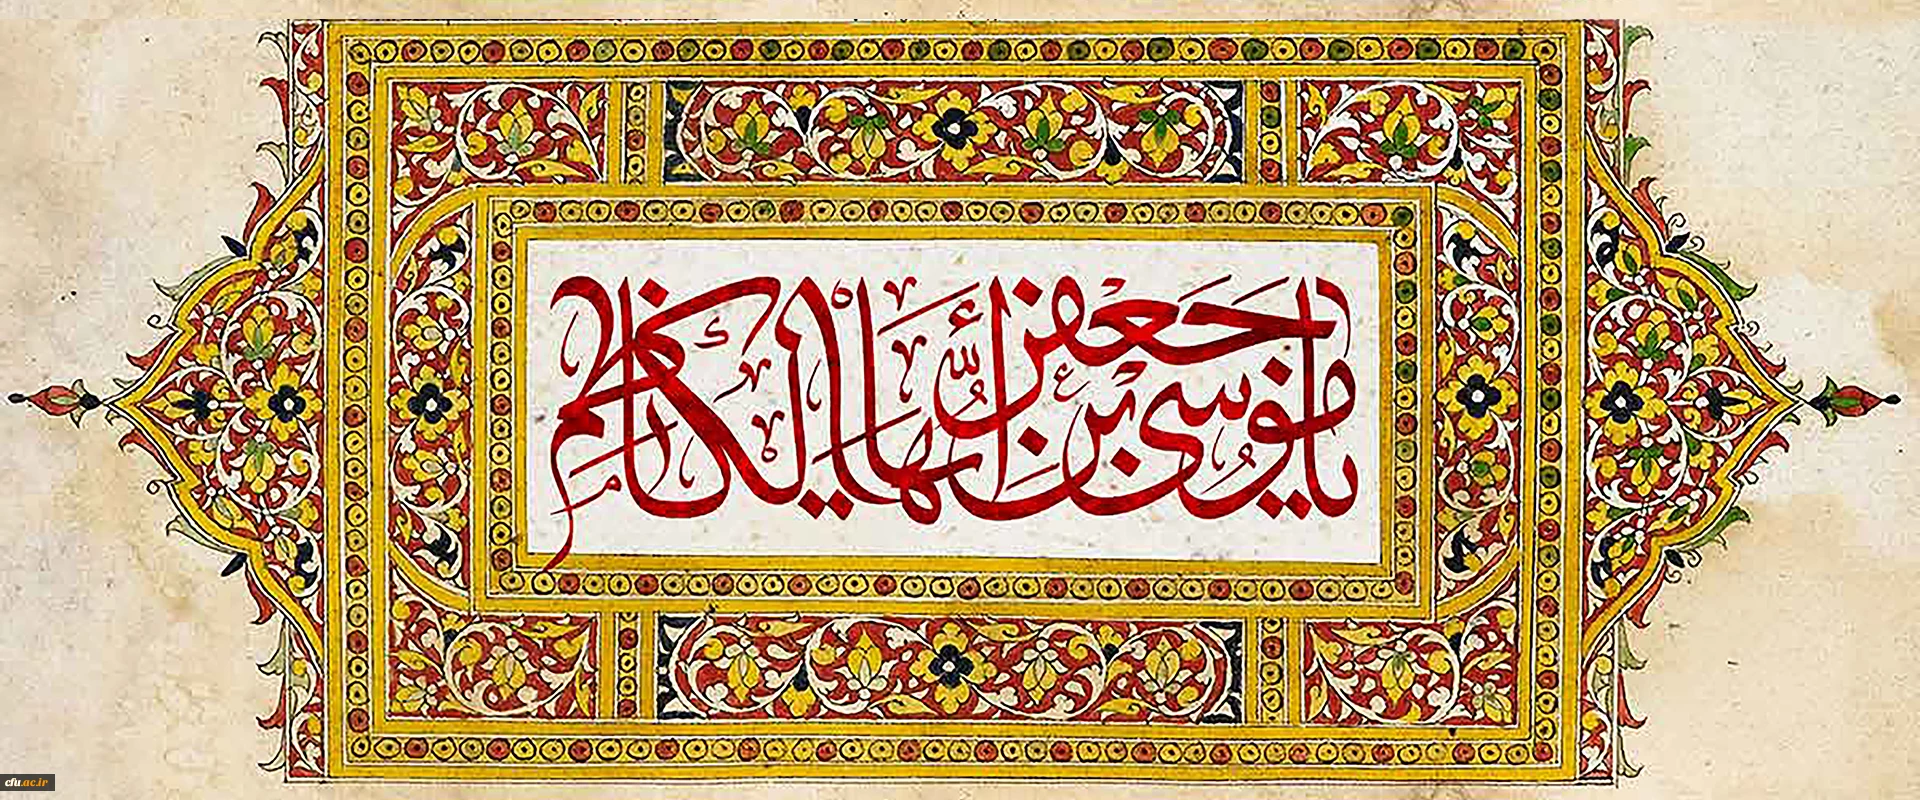 یا موسی بن جعفر ایها الکاظم
cfu.ac.ir